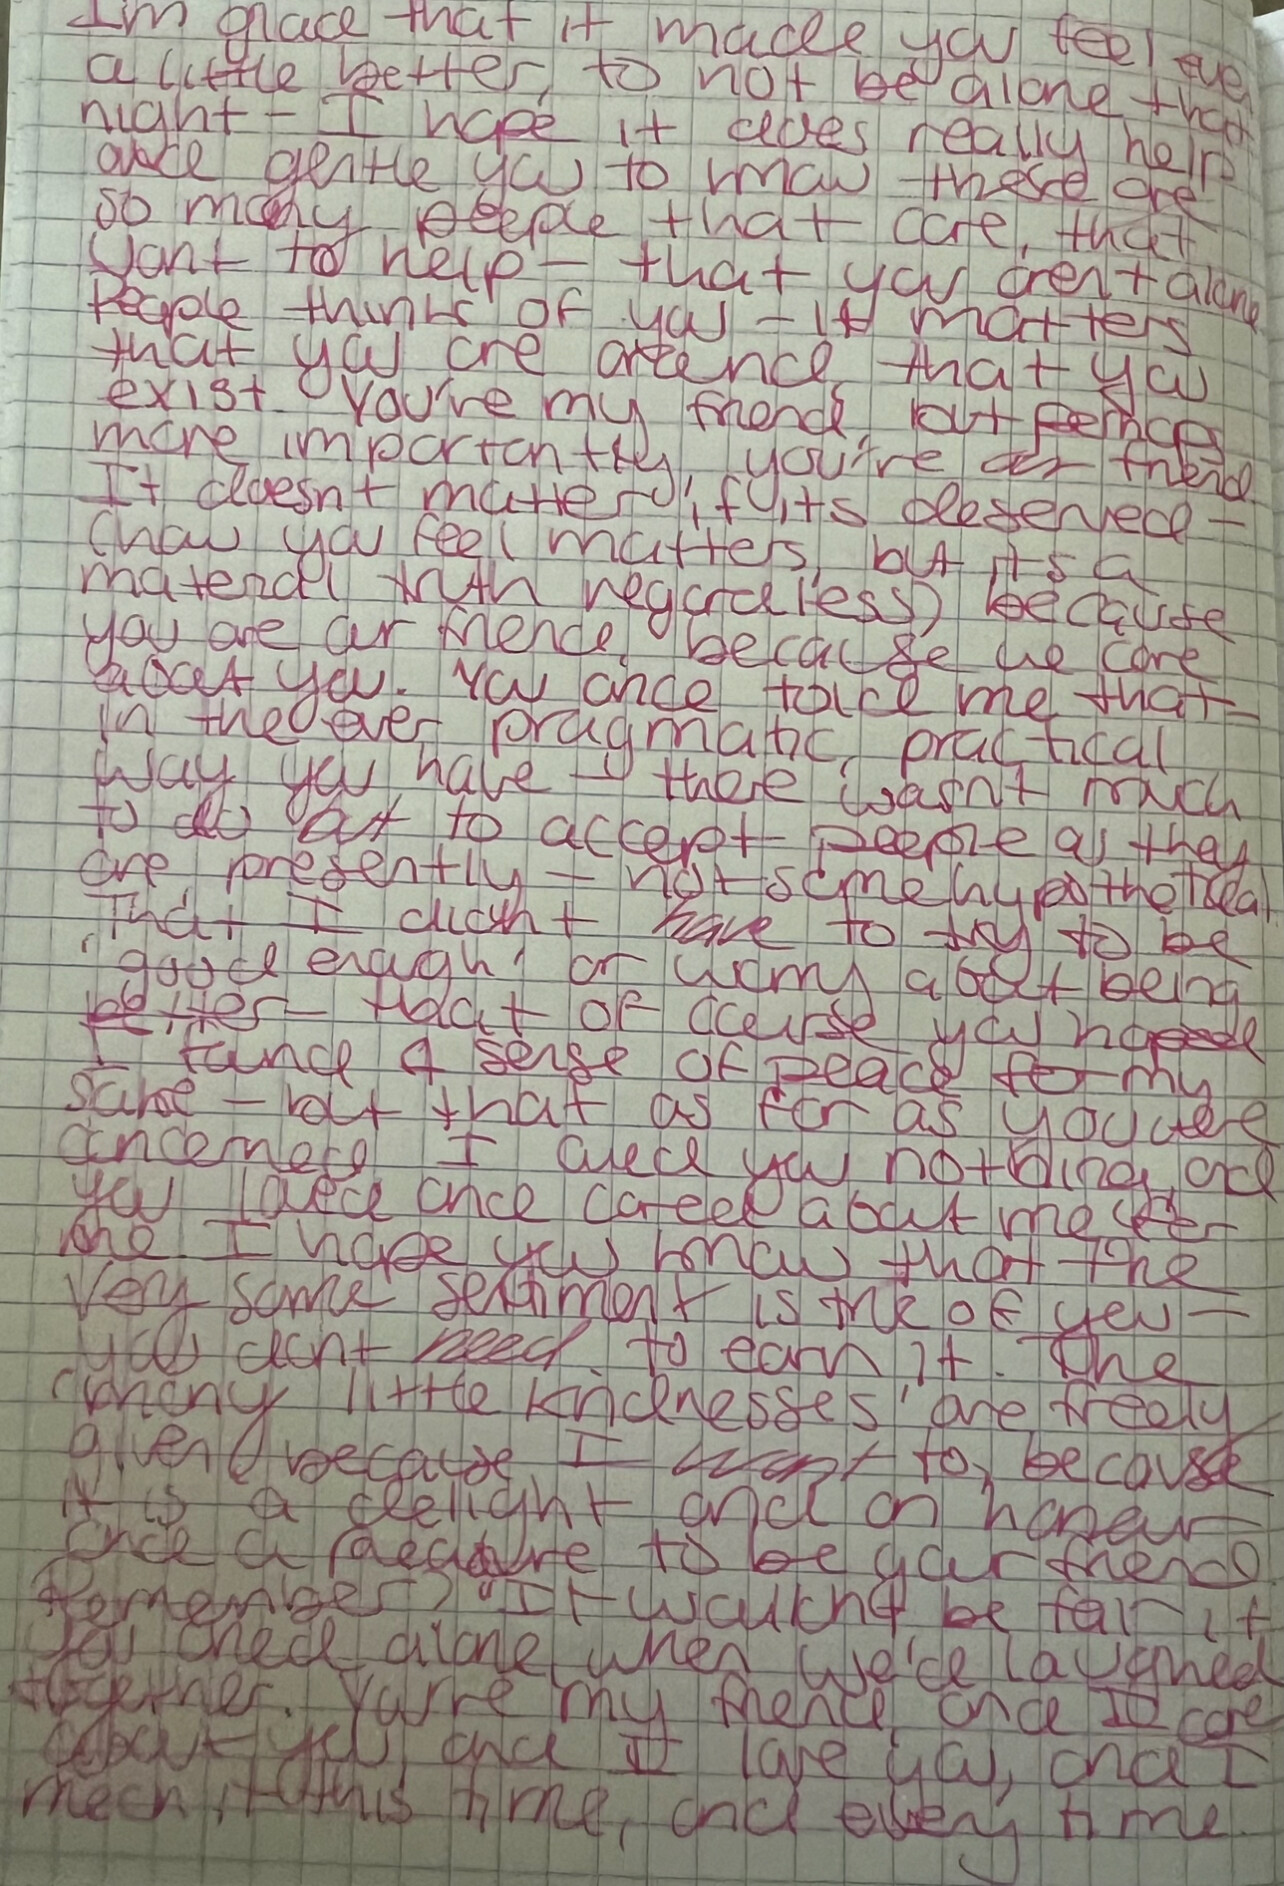 I'm glad that it made you feel even
a little better, to not be alone that
night - I hope it does really help
and gentle you to know there are
so many people that care, that
want to help - that you aren't alone
People thinks of you - it matters
that you are around, that you
exist. You're my friend, but perhaps
more importantly, you're our friend
It doesn't matter if its deserved -
(how you feel matters, but its a
material truth regardless) because
you are our friend, because we care
about you. You once told me that -
in the ever pragmatic, practical
way you have - there wasn't much
to do but to accept people as they
are presently - not some hypothetical
That I didn't have to try to be
'good enough' or worry about being
better - that of course you hoped
I found a sense of peace for my
sake - but that as far as you were
concerned I owed you nothing, and
you loved and cared about me for
me. I hope you know that the
very same sentiment is true of you -
you don't need to earn it. The
'many little kindnesses' are freely
given because I want to, because
it is a delight and an honour
and a pleasure to be your friend
Remember? "It wouldn't be fair if
you cried alone when we'd laughed
together. You're my friend and I care
about you and I love you, and I
mean it this time, and every time.